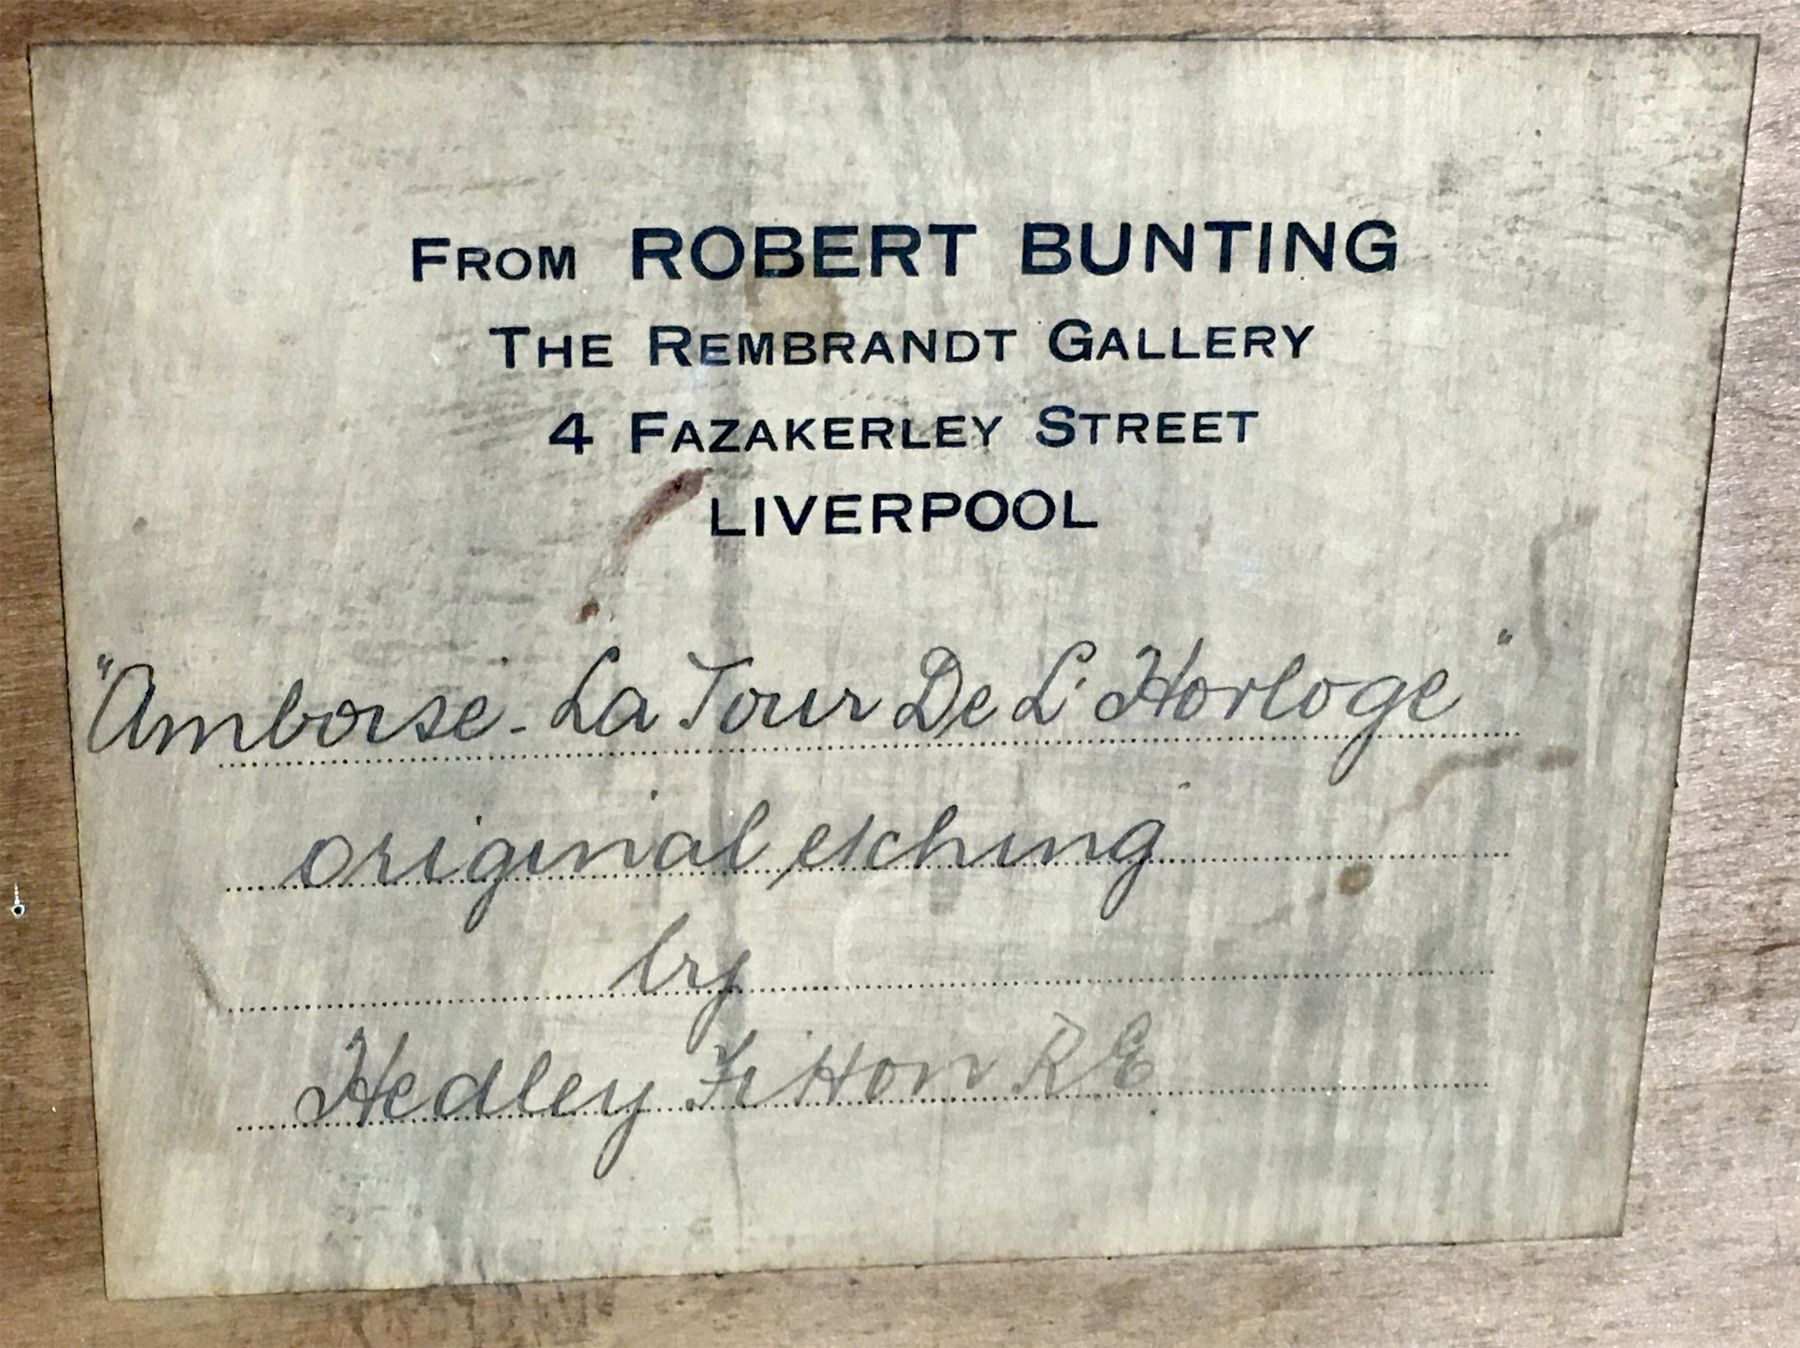 FROM ROBERT BUNTING
THE REMBRANDT GALLERY
4 FAZAKERLEY STREET
LIVERPOOL
"Amboise - La Tour De L'Horloge"
original etching
by
Hedley Fitton R E